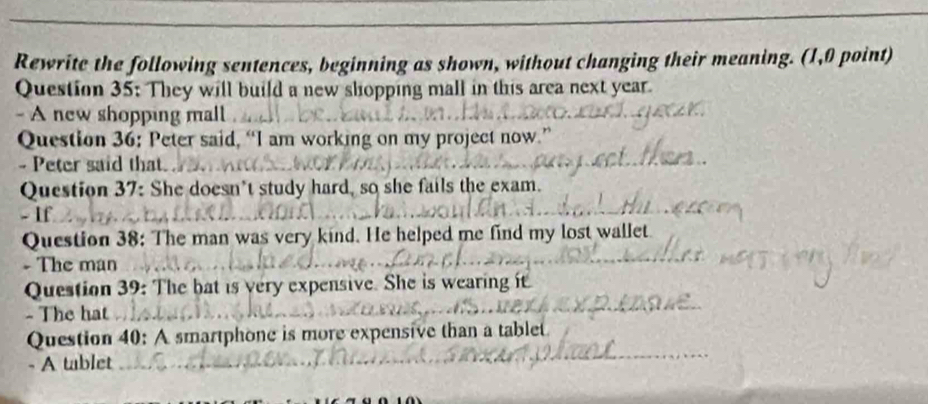 Rewrite the following sentences, beginning as shown, without changing their meaning. (1,0 point)
Question 35: They will build a new shopping mall in this area next year.
- A new shopping mall will be built in this area next year.
Question 36: Peter said, “I am working on my project now.”
- Peter said that he was working project then
Question 37: She doesn't study hard, so she fails the exam.
- If she studied hard she wouldn't fail the exam
Question 38: The man was very kind. He helped me find my lost wallet
- The man who helped me find my lost wallet was very kind
Question 39: The hat is very expensive. She is wearing it.
- The hat is very expensive
Question 40: A smartphone is more expensive than a tablet.
- A tablet is smartphone